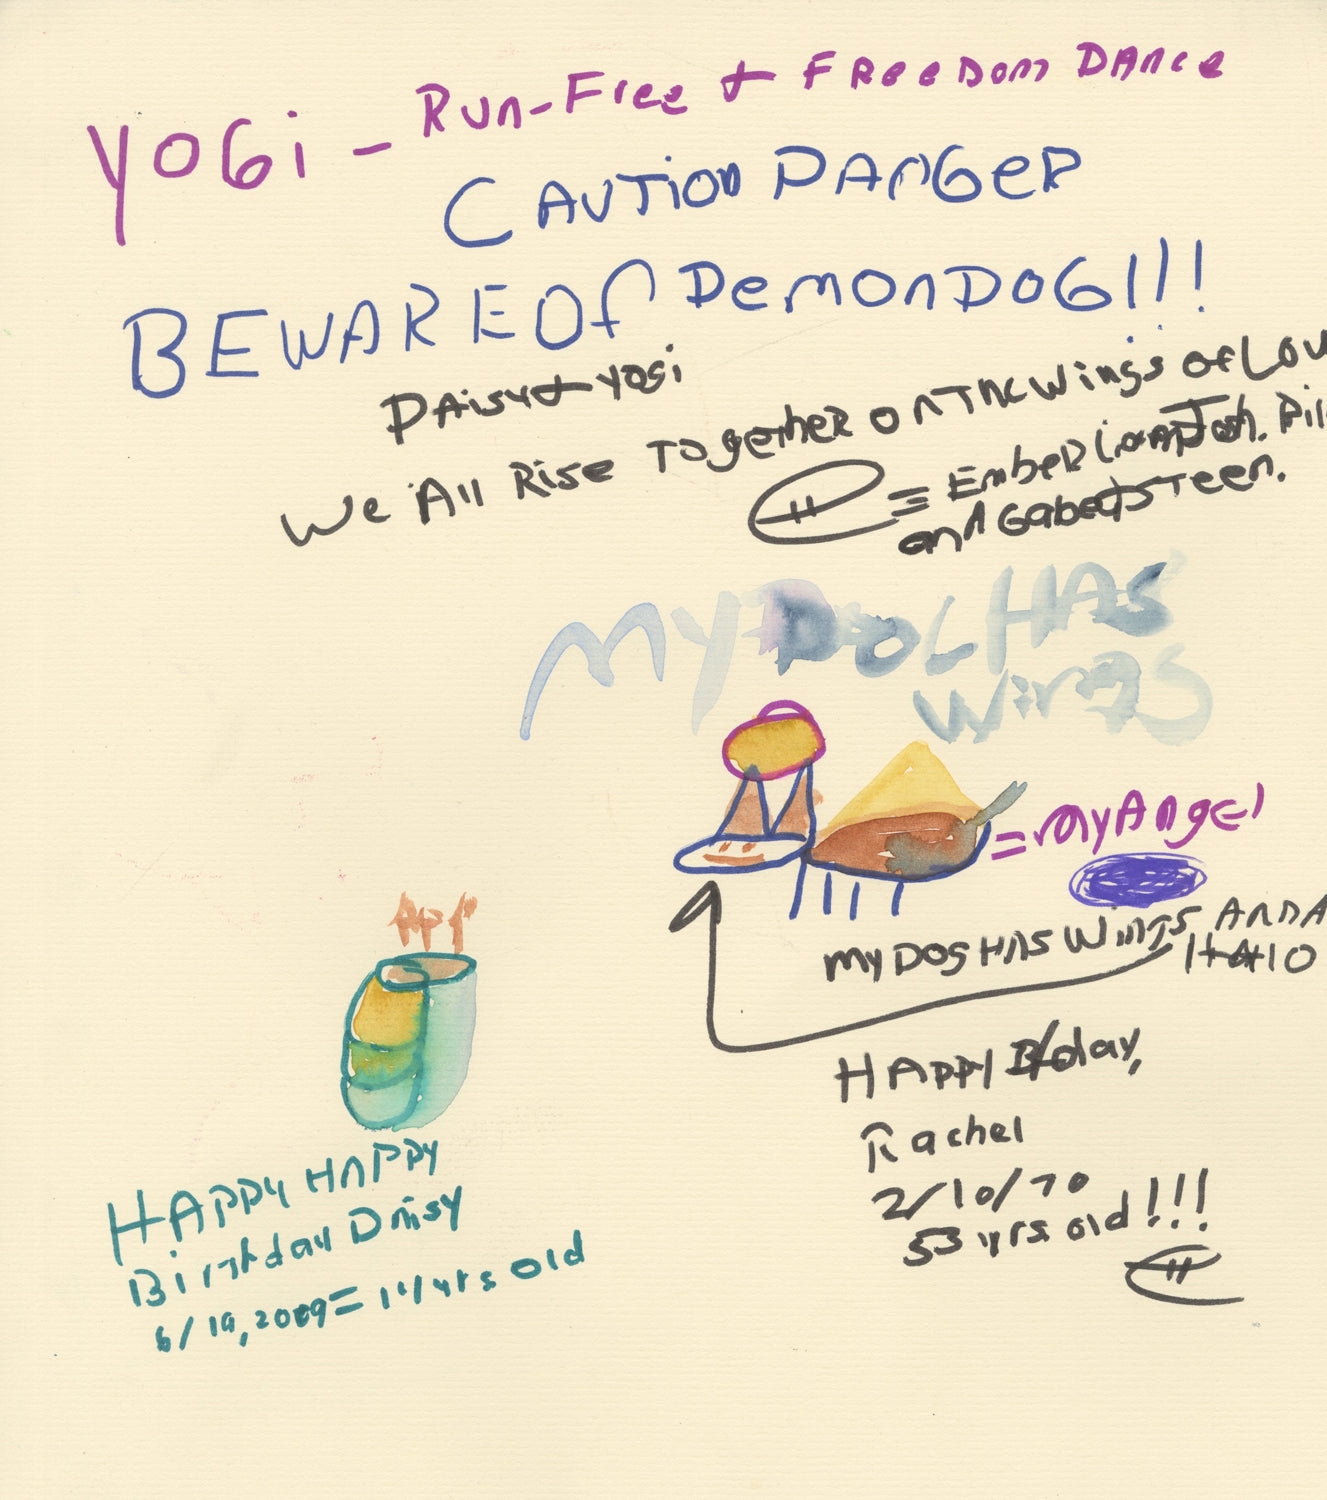 YOGi - Run-Free + FReeDom DAnce
CAUTion DAnGeR
BEWARE Of DemonDOG!!!
DAisy + YOGi
We All Rise TogetheR On The Wings of Lov
= EmbeR
and
MY DOG HAS
Wings
= myAngel
my DOG HAS Wings AnD A
HAlO
Apr
HAPPY B/day,
Rachel
2/10/70
53 yrs old!!!
HAPPY HAPPY
Birthday DAisy
6/19, 2009 = 14 yrs old